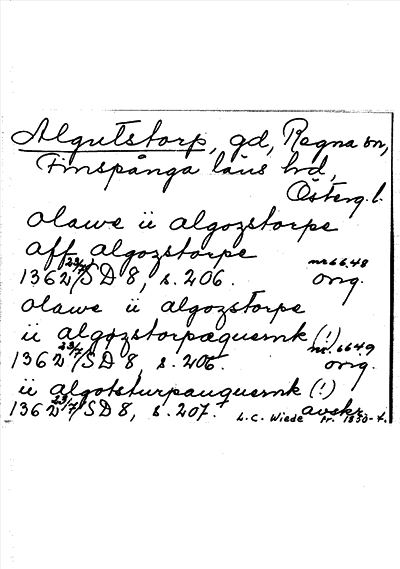 Algutstorp, gd, Regna sn,
Finspånga läns hd,
Österg. l.
olawe ii algozstorpe
aff algozstorpe
1362 23/7 SD 8, s. 206. nr 6648 orig.
olawe ii algozstorpe
ii algozstorpæquernk (!)
1362 23/7 SD 8, s. 206. nr. 6649 orig.
ii algotsturpauquernk (!)
1362 23/7 SD 8, s. 207. avskr.
L. C. Wiede fr. 1850-t.